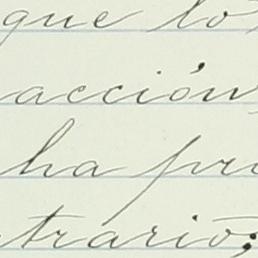 que lo
acción
ha pro
trario;